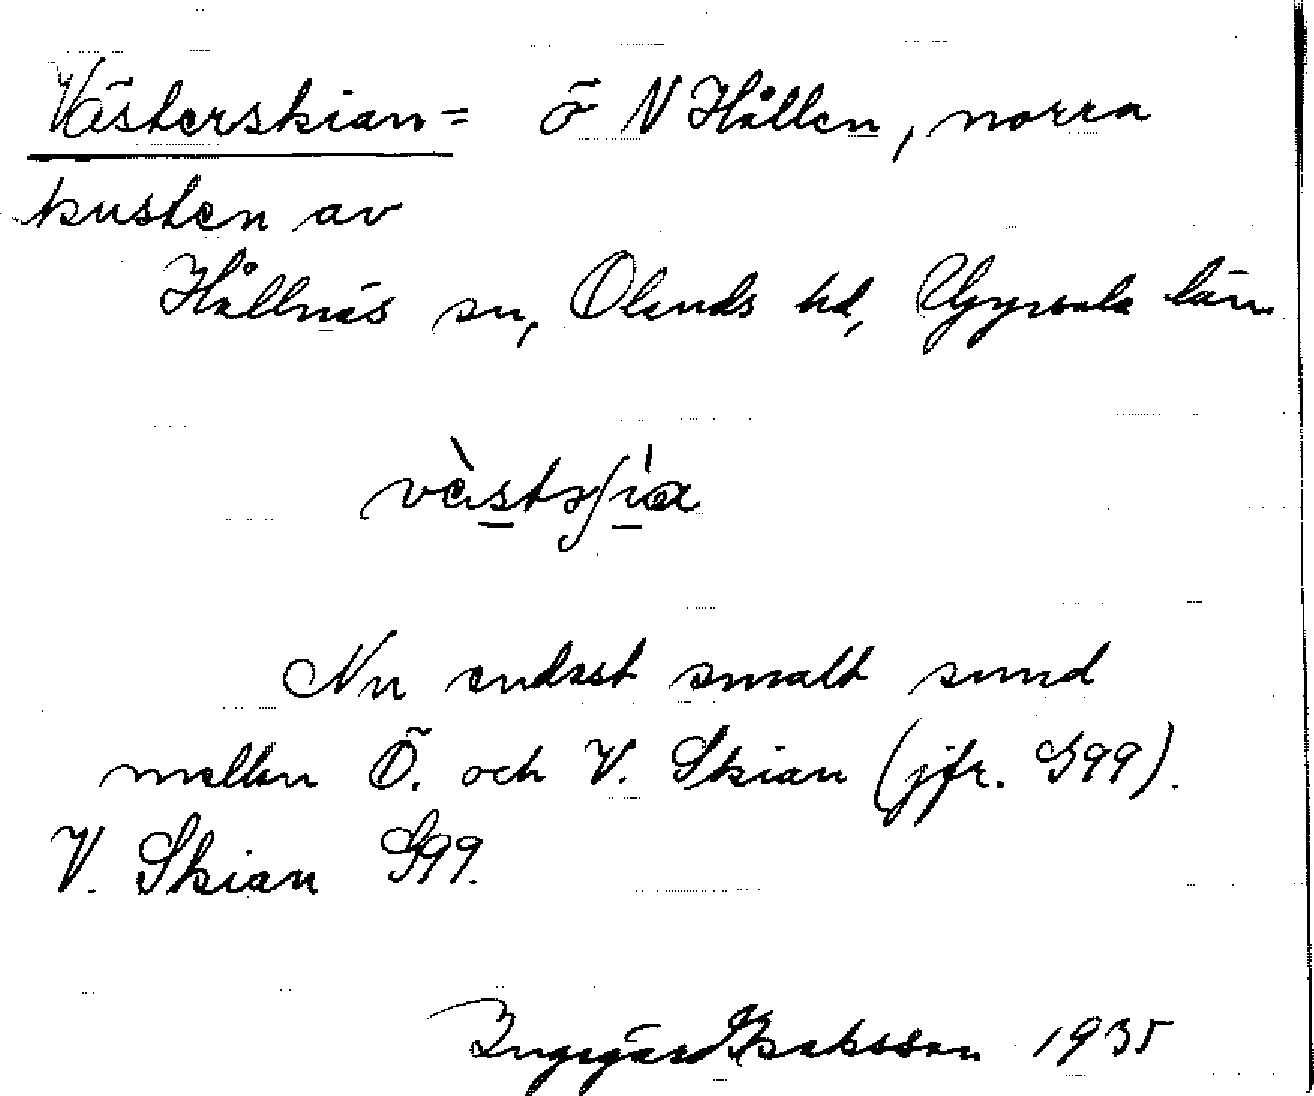 Västerskian = ö N Hållen, norra
kusten av
Hållnäs sn, Olands hd, Uppsala län
Nu endast smalt sund
mellan Ö. och V. Skian (jfr. G99).
V. Skian G99.
Ingegärd Isaksson 1935